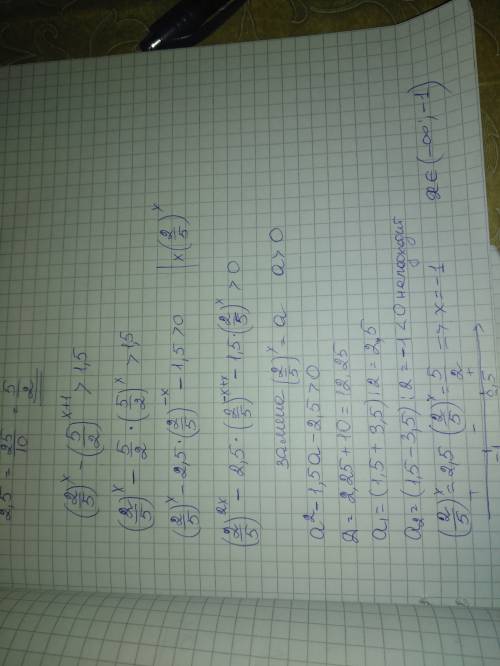 2,5 = 25/10 = 5/2
(2/5)^x - (5/2)^(x+1) > 1,5
(2/5)^x - 5/2 · (5/2)^x > 1,5
(2/5)^x - 2,5 · (2/5)^(-x) - 1,5 > 0 | x (2/5)^x
(2/5)^(2x) - 2,5 · (2/5)^(-x+x) - 1,5 · (2/5)^x > 0
замена (2/5)^x = a a > 0
a² - 1,5a - 2,5 > 0
D = 2,25 + 10 = 12,25
a₁ = (1,5 + 3,5) : 2 = 2,5
a₂ = (1,5 - 3,5) : 2 = -1 < 0 не подходит
(2/5)^x = 2,5 (2/5)^x = 5/2 => x = -1
+ - +
-1 2,5
x ∈ (-∞; -1)